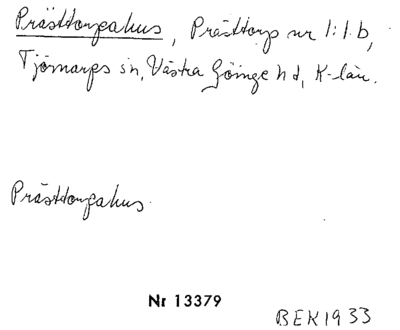 Prästtorpahus, Prästtorp nr 1:1 b,
Tjörnarps sn, Västra Göinge hd, K-län.
Prästtorpahus.
Nr 13379
BEK1933